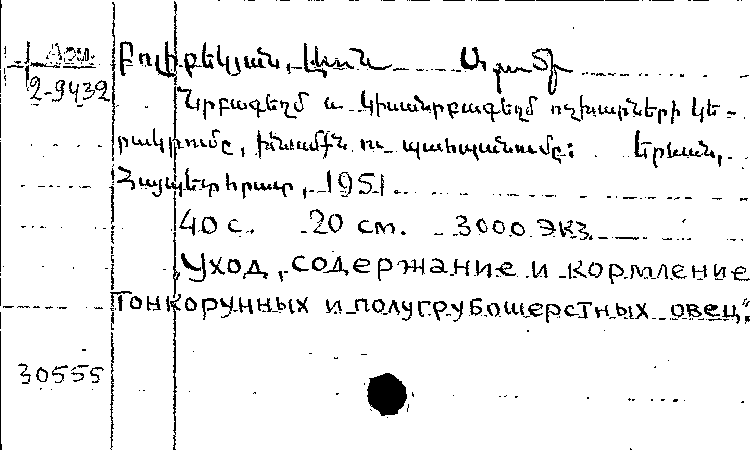 Арм.
2-9432
Նրբագեղմ և կիսանրբագեղմ ոչխարների կե-
րակրումը, խնամքն ու պահպանումը: Երևան,
Հայպետհրատ, 1951.
40 с. 20 см. 3000 экз.
"Уход, содержание и кормление
тонкорунных и полугрубошерстных овец".
30555